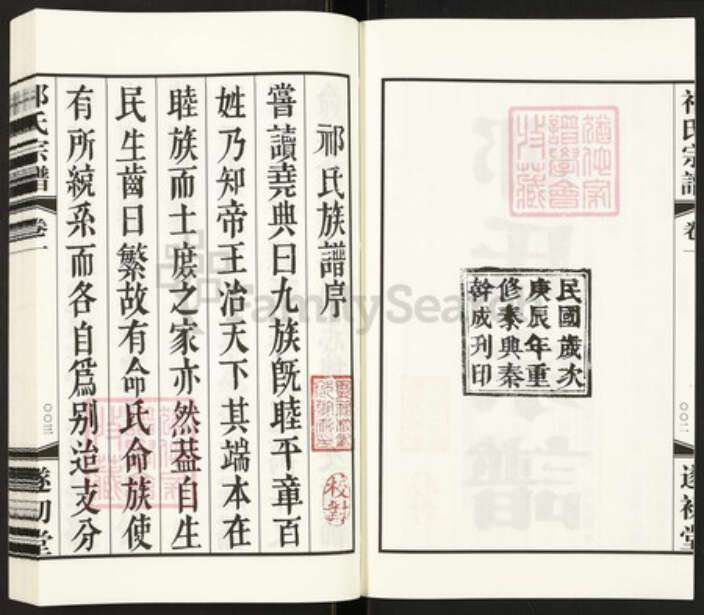 祁氏宗譜
卷一
〇〇二
遂初堂
民國歲次
庚辰年重
修泰興秦
幹成刊印
祁氏族譜序
嘗讀堯典曰九族既睦平章百
姓乃知帝王治天下其端本在
睦族而士庶之家亦然葢自生
民生齒日繁故有命氏命族使
有所統系而各自爲别迨支分
校對
祁氏宗譜
卷一
〇〇三
遂初堂
FamilySearch